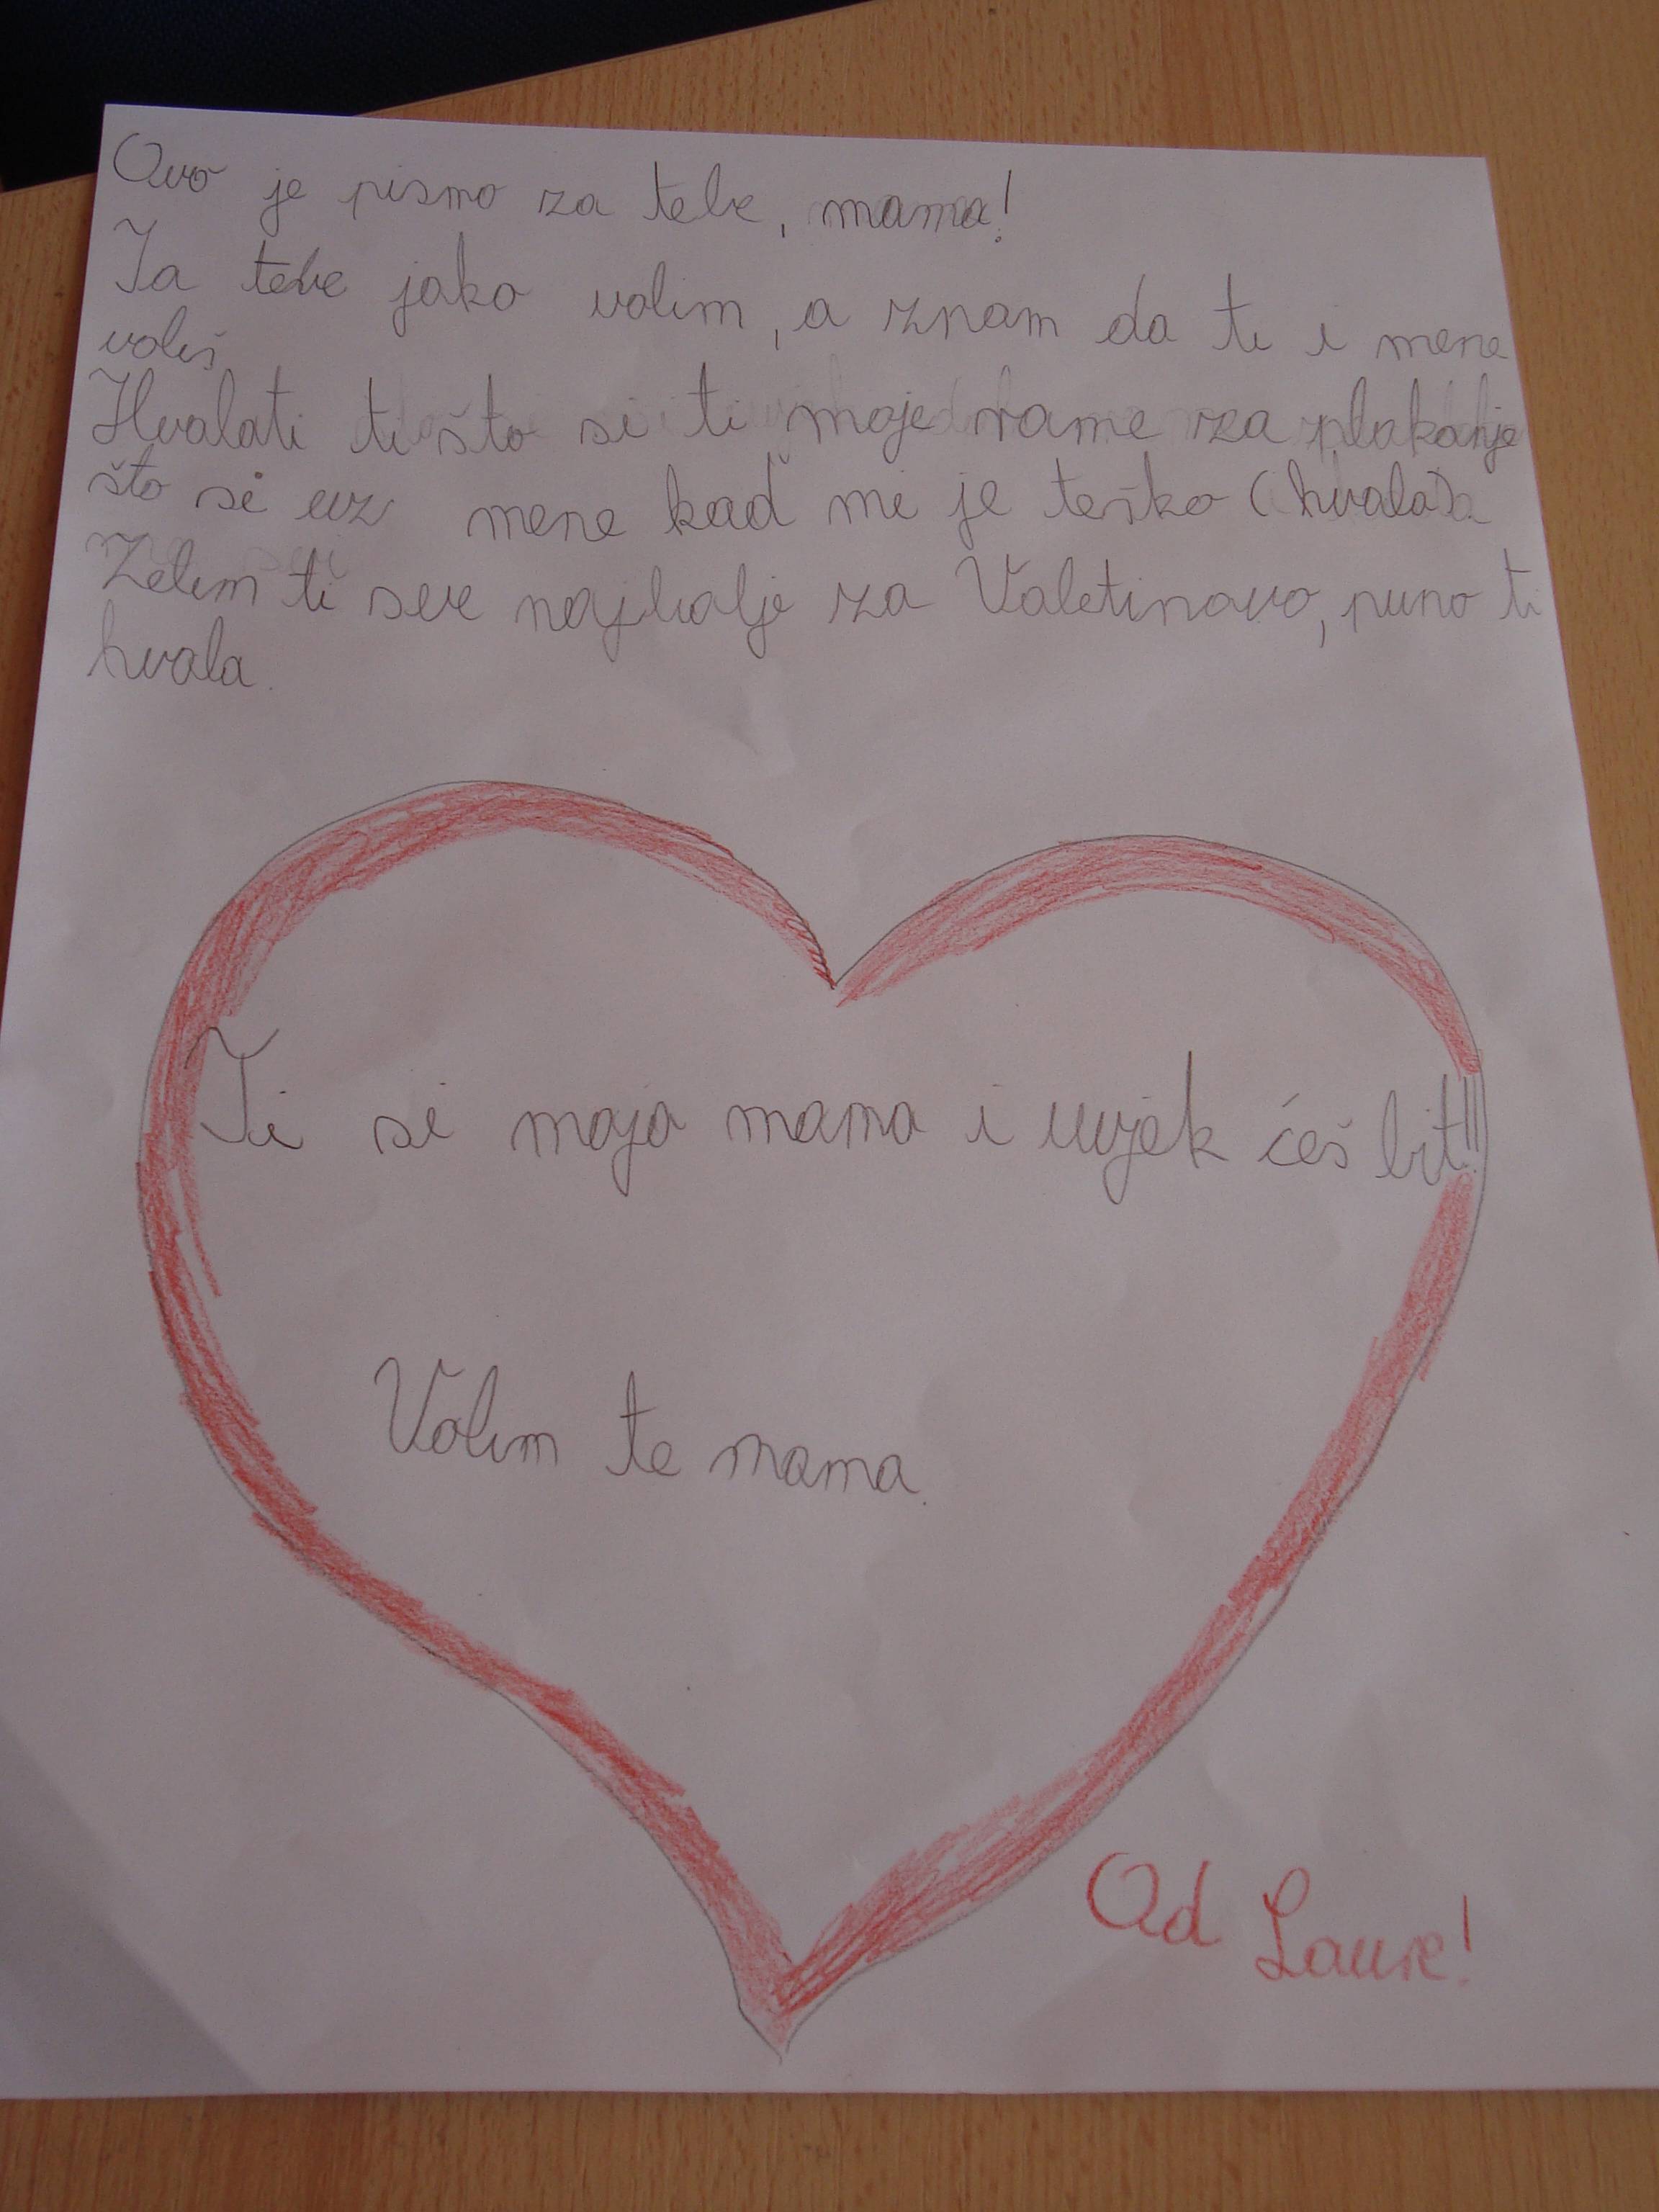 Ovo je pismo za tebe, mama!
Ja tebe jako volim, a znam da ti i mene
voliš
Hvalati ti što si ti moje rame za plakanje
što si uz mene kad mi je teško (hvala)
Želim ti sve najbolje za Valetinovo, puno ti
hvala.
Ti si moja mama i uvjek ćeš bit!!!
Volim te mama.
Od Laure!